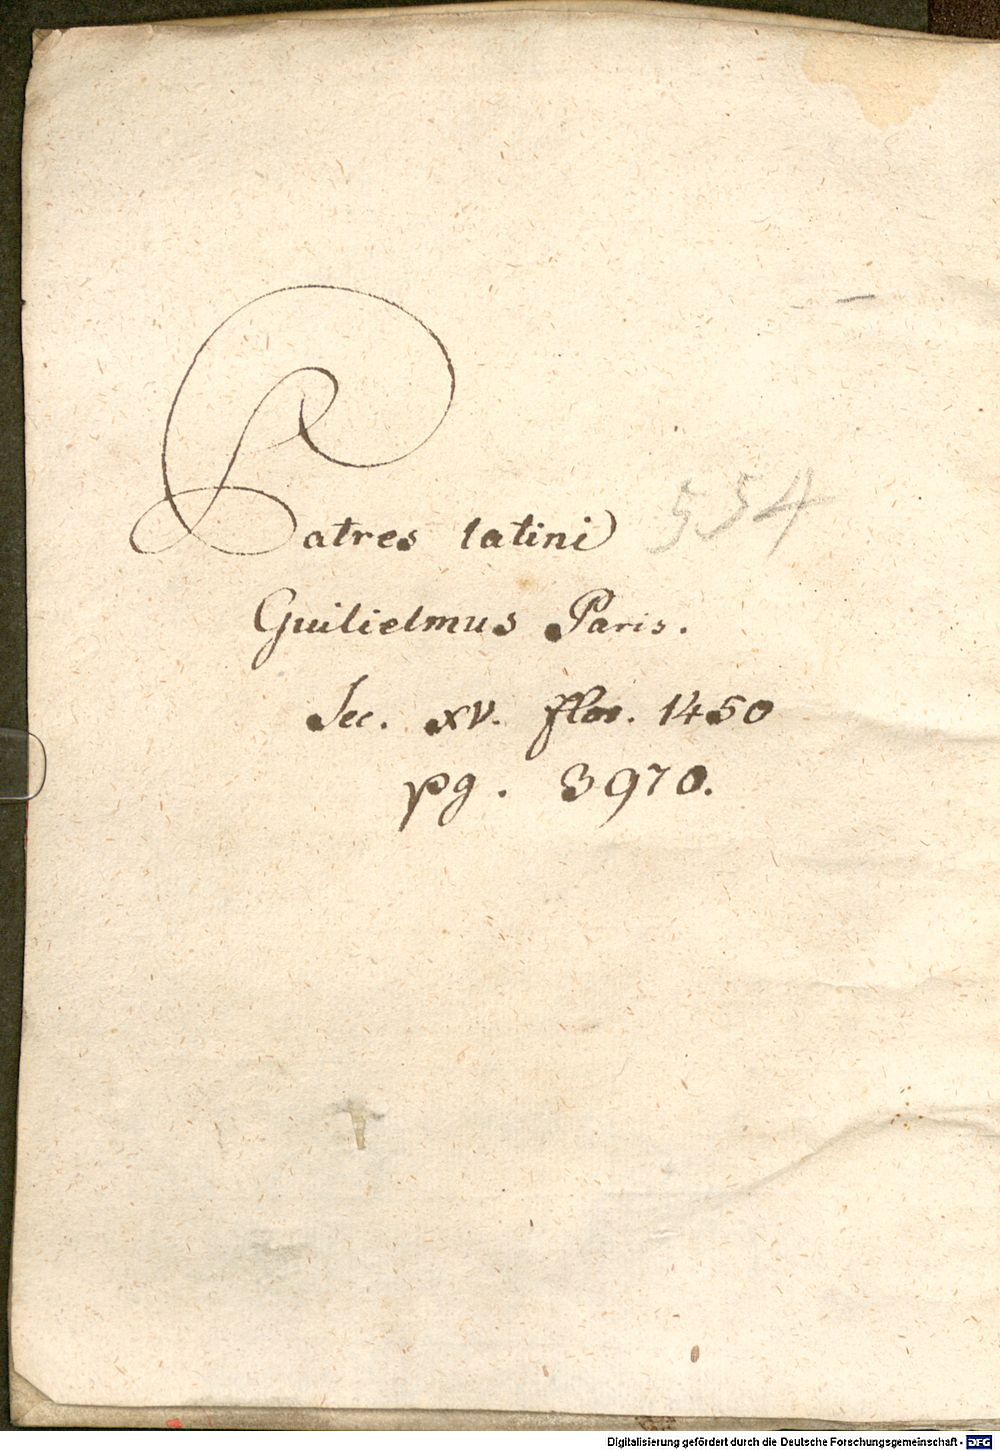 Patres latini 554
Guilielmus Paris.
Sec. XV. flor. 1450
pg. 3970.
Digitalisierung gefördert durch die Deutsche Forschungsgemeinschaft - DFG